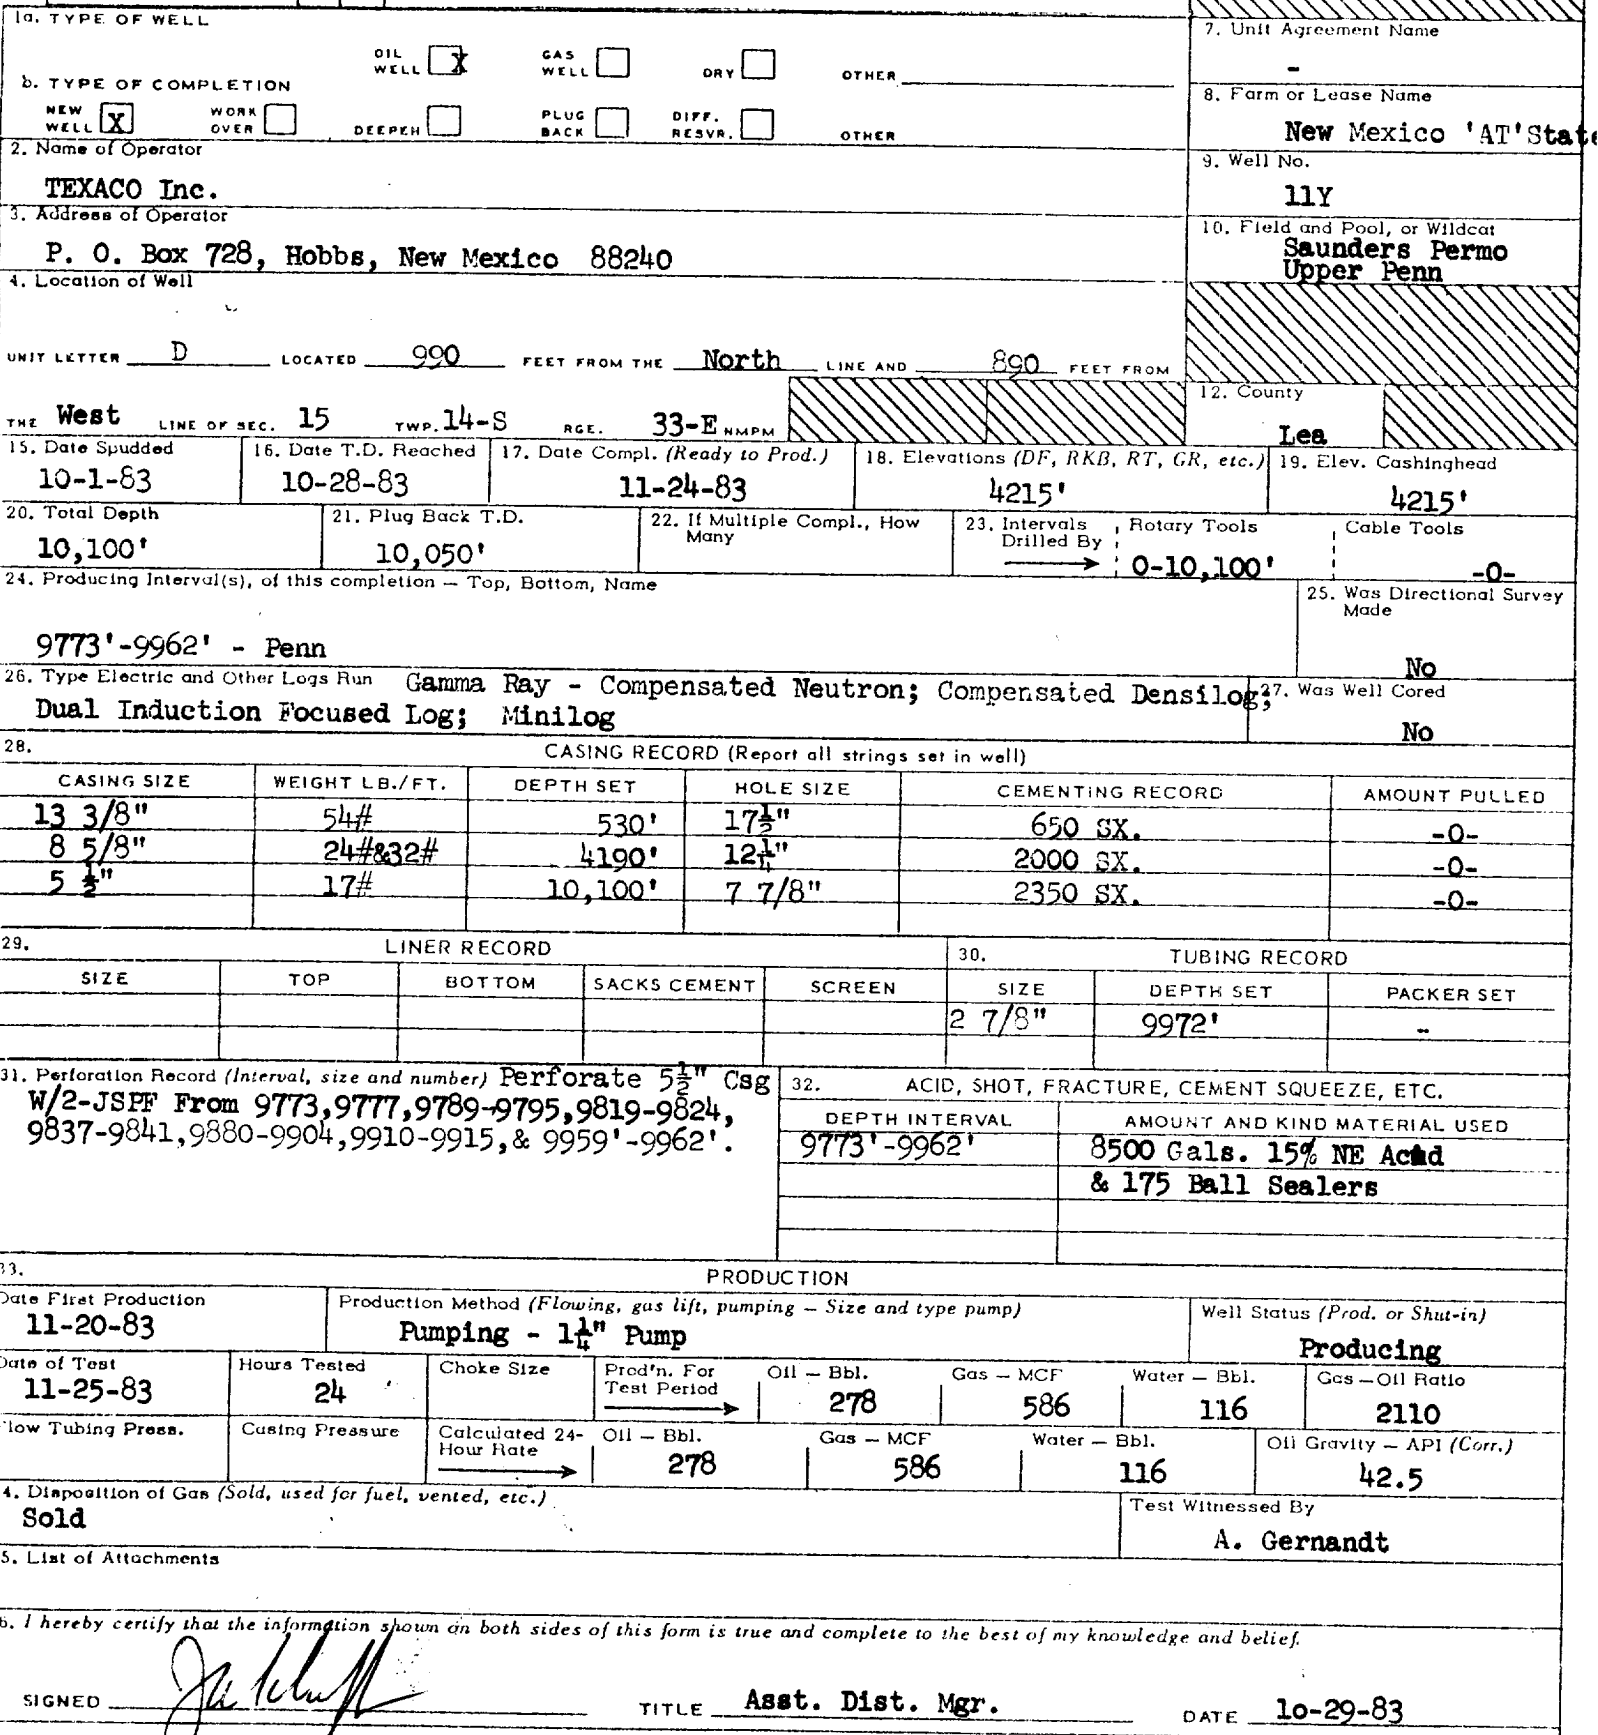 1a. TYPE OF WELL
OIL WELL [X] GAS WELL [ ] DRY [ ] OTHER
b. TYPE OF COMPLETION
NEW WELL [X] WORK OVER [ ] DEEPEN [ ] PLUG BACK [ ] DIFF. RESVR. [ ] OTHER
7. Unit Agreement Name
-
8. Farm or Lease Name
New Mexico 'AT'State
2. Name of Operator
TEXACO Inc.
9. Well No.
11Y
3. Address of Operator
P. O. Box 728, Hobbs, New Mexico 88240
10. Field and Pool, or Wildcat
Saunders Permo
Upper Penn
4. Location of Well
UNIT LETTER D LOCATED 990 FEET FROM THE North LINE AND 890 FEET FROM
THE West LINE OF SEC. 15 TWP. 14-S RGE. 33-E NMPM
12. County
Lea
15. Date Spudded 16. Date T.D. Reached 17. Date Compl. (Ready to Prod.) 18. Elevations (DF, RKB, RT, GR, etc.) 19. Elev. Cashinghead
10-1-83 10-28-83 11-24-83 4215' 4215'
20. Total Depth 21. Plug Back T.D. 22. If Multiple Compl., How Many 23. Intervals Drilled By Rotary Tools Cable Tools
10,100' 10,050' 0-10,100' -0-
24. Producing Interval(s), of this completion — Top, Bottom, Name
9773'-9962' - Penn
25. Was Directional Survey Made
No
26. Type Electric and Other Logs Run Gamma Ray - Compensated Neutron; Compensated Densilog;
Dual Induction Focused Log; Minilog
27. Was Well Cored
No
28. CASING RECORD (Report all strings set in well)
CASING SIZE WEIGHT LB./FT. DEPTH SET HOLE SIZE CEMENTING RECORD AMOUNT PULLED
13 3/8" 54# 530' 17½" 650 SX. -0-
8 5/8" 24#&32# 4190' 12¼" 2000 SX. -0-
5 ½" 17# 10,100' 7 7/8" 2350 SX. -0-
29. LINER RECORD 30. TUBING RECORD
SIZE TOP BOTTOM SACKS CEMENT SCREEN SIZE DEPTH SET PACKER SET
2 7/8" 9972' -
31. Perforation Record (Interval, size and number) Perforate 5½" Csg
W/2-JSPF From 9773,9777,9789-9795,9819-9824,
9837-9841,9880-9904,9910-9915,& 9959'-9962'.
32. ACID, SHOT, FRACTURE, CEMENT SQUEEZE, ETC.
DEPTH INTERVAL AMOUNT AND KIND MATERIAL USED
9773'-9962' 8500 Gals. 15% NE Acid
& 175 Ball Sealers
33. PRODUCTION
Date First Production Production Method (Flowing, gas lift, pumping — Size and type pump) Well Status (Prod. or Shut-in)
11-20-83 Pumping - 1¼" Pump Producing
Date of Test Hours Tested Choke Size Prod'n. For Test Period Oil — Bbl. Gas — MCF Water — Bbl. Gas—Oil Ratio
11-25-83 24 278 586 116 2110
Flow Tubing Press. Casing Pressure Calculated 24-Hour Rate Oil — Bbl. Gas — MCF Water — Bbl. Oil Gravity — API (Corr.)
278 586 116 42.5
4. Disposition of Gas (Sold, used for fuel, vented, etc.) Test Witnessed By
Sold A. Gernandt
5. List of Attachments
6. I hereby certify that the information shown on both sides of this form is true and complete to the best of my knowledge and belief.
SIGNED TITLE Asst. Dist. Mgr. DATE 10-29-83